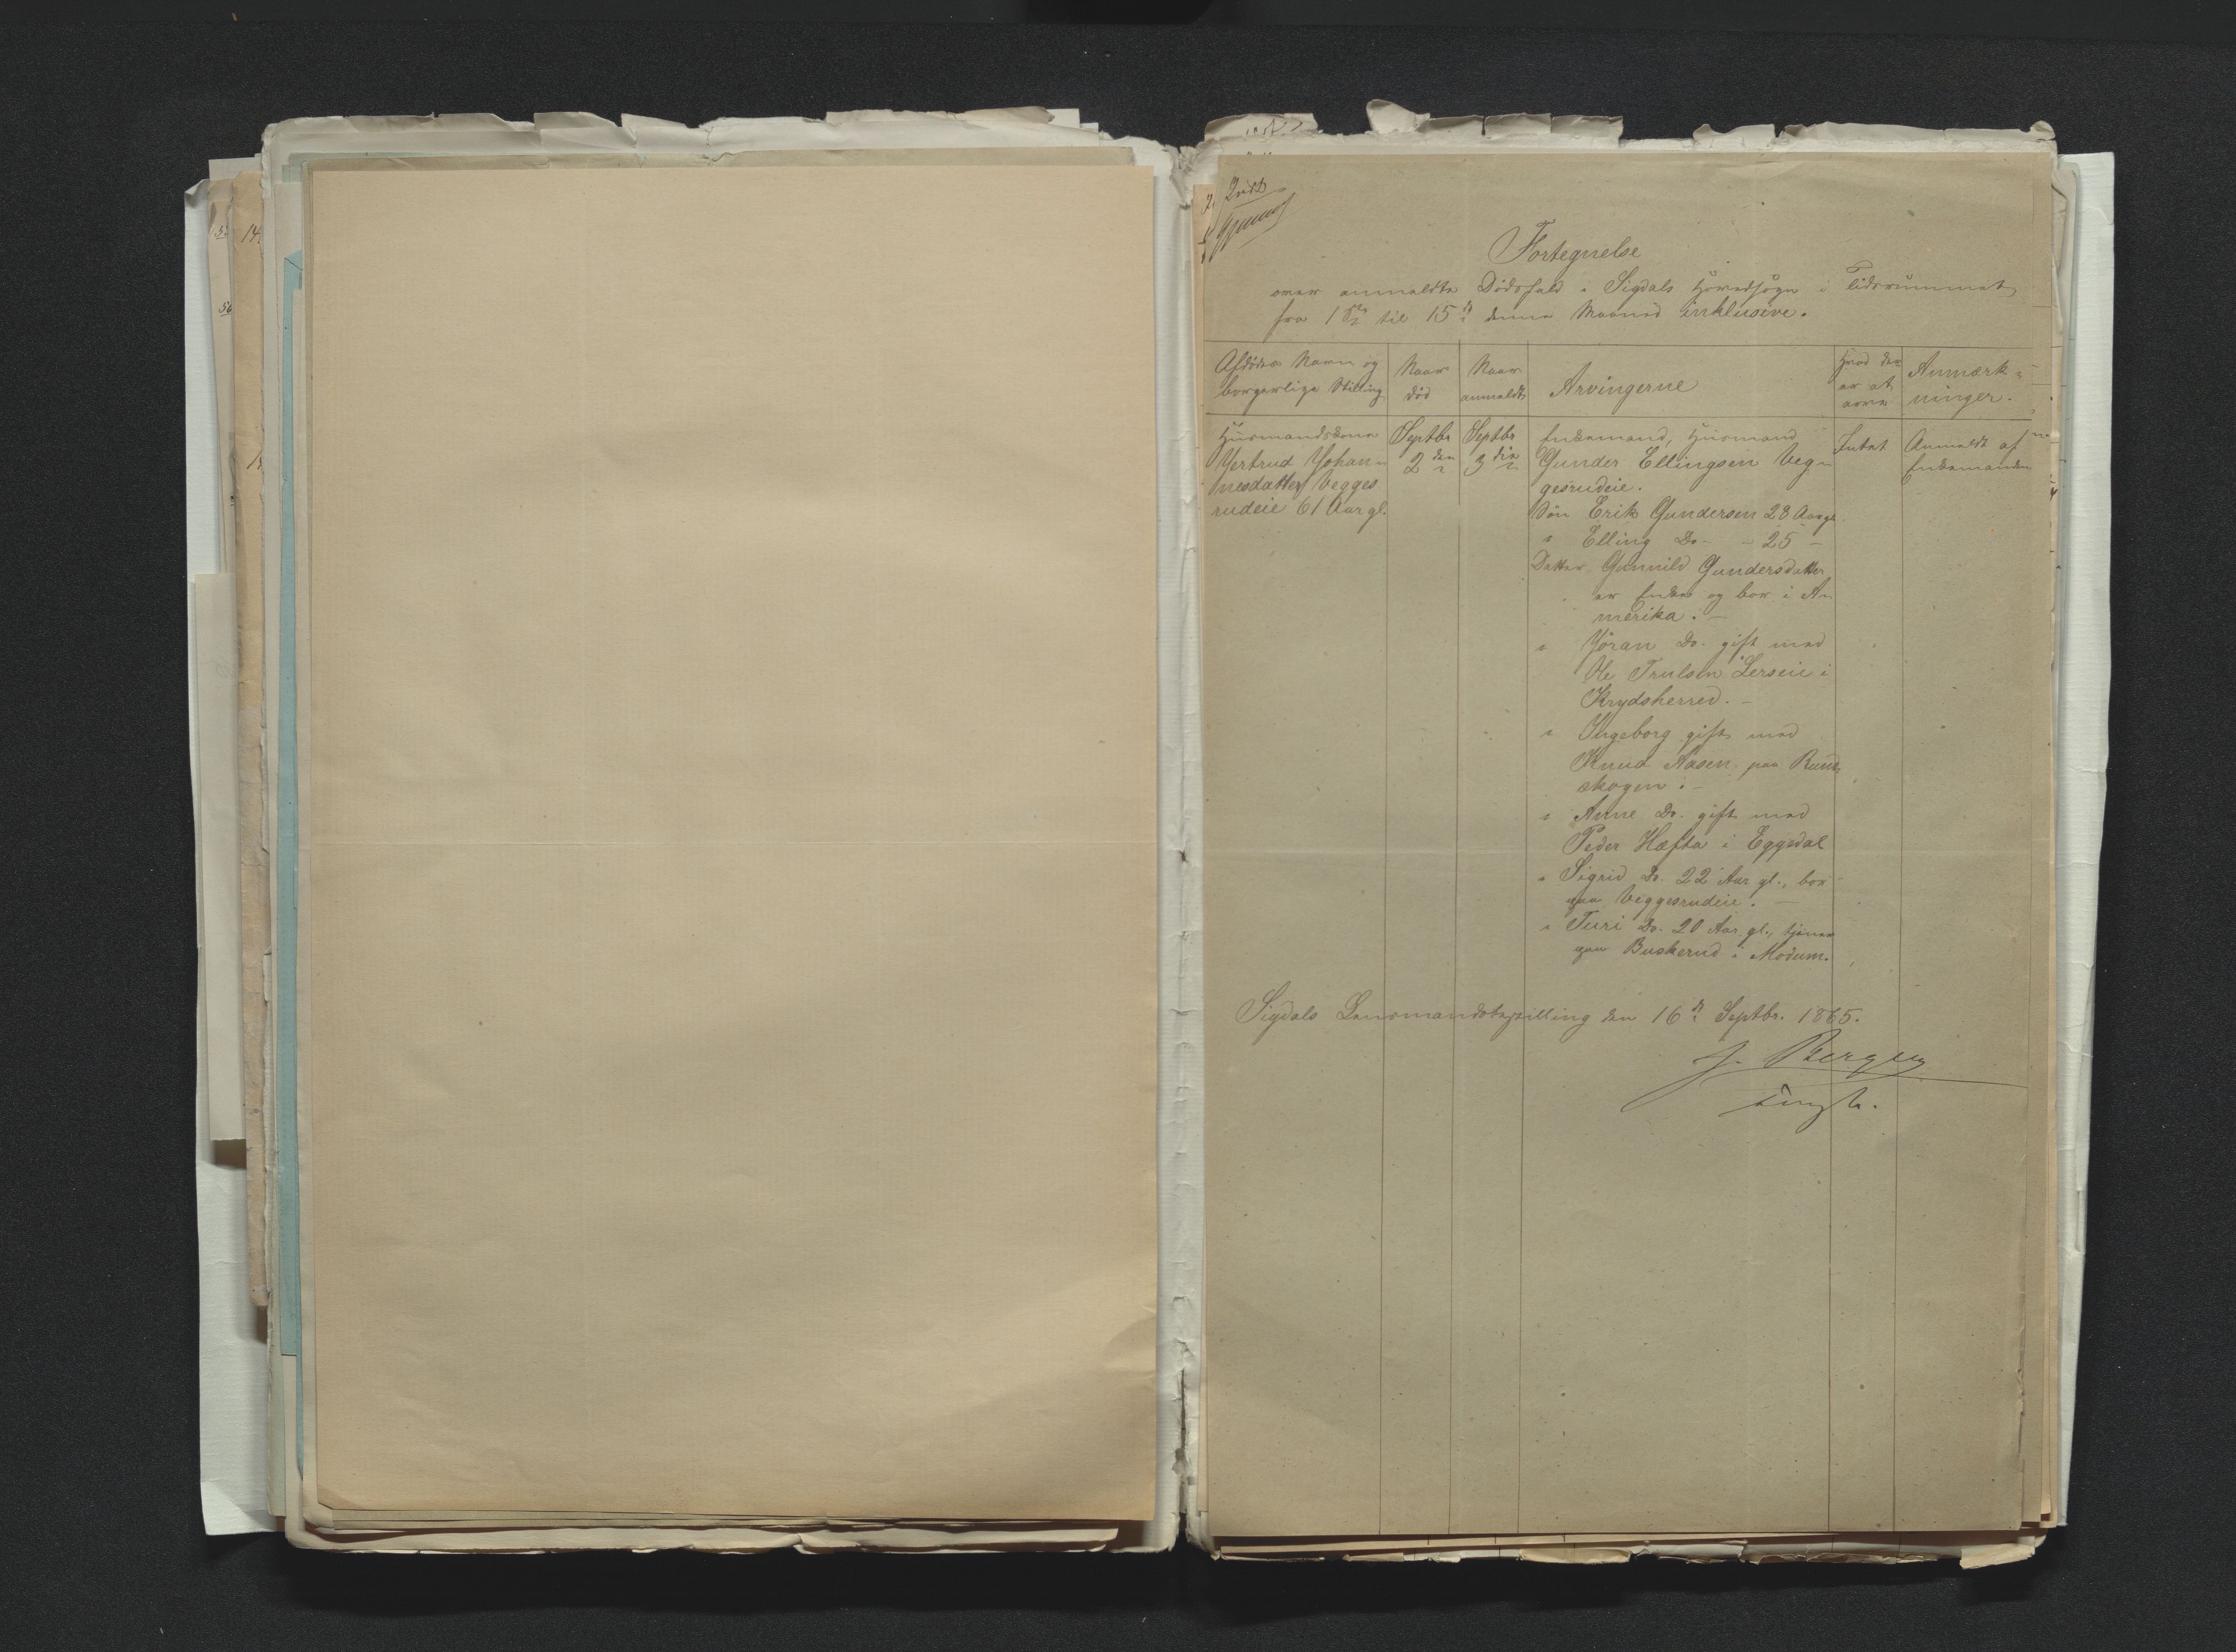 Fortegnelse
over anmeldte Dødsfald i Sigdals Hovedsogn i Tidsrummet
fra 1ste til 15de denne Maaned inklusive.
Afdødes Navn og
borgerlige Stilling
Naar
død
Naar
anmeldt
Arvingerne
Hvad der
er at
arve
Anmærk-
ninger.
Huusmandskone
Gertrud Johan-
nesdatter Vegges
rudeie 61 Aar gl.
Septbr
2den
Septbr
3die
Enkemand, Huusmand
Gunder Ellingsen Veg-
gesrudeie.
Søn Erik Gundersen 28 Aar gl.
" Elling Do - - 25 -
Datter Gunnild Gundersdatter
er Enke og bor i A-
merika. -
" Jöran Do. gift med
Ole Trulsen Lerseie i
Krydsherred. -
" Ingeborg gift med
Knud Aasen paa Rund-
skogen. -
" Anne Do. gift med
Peder Hæfta i Eggedal
" Sigrid Do. 22 Aar gl., bor
paa Veggesrudeie. -
" Turi Do. 20 Aar gl., tjener
paa Buskerud i Modum.
Intet
Anmeldt af
Enkemanden
Sigdals Lensmandsbestilling den 16de Septbr. 1865.
J. Bergen